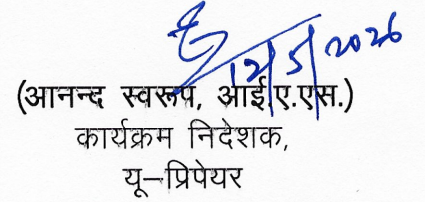 12/5/2026
(आनन्द स्वरूप, आई.ए.एस.)
कार्यक्रम निदेशक,
यू–प्रिपेयर